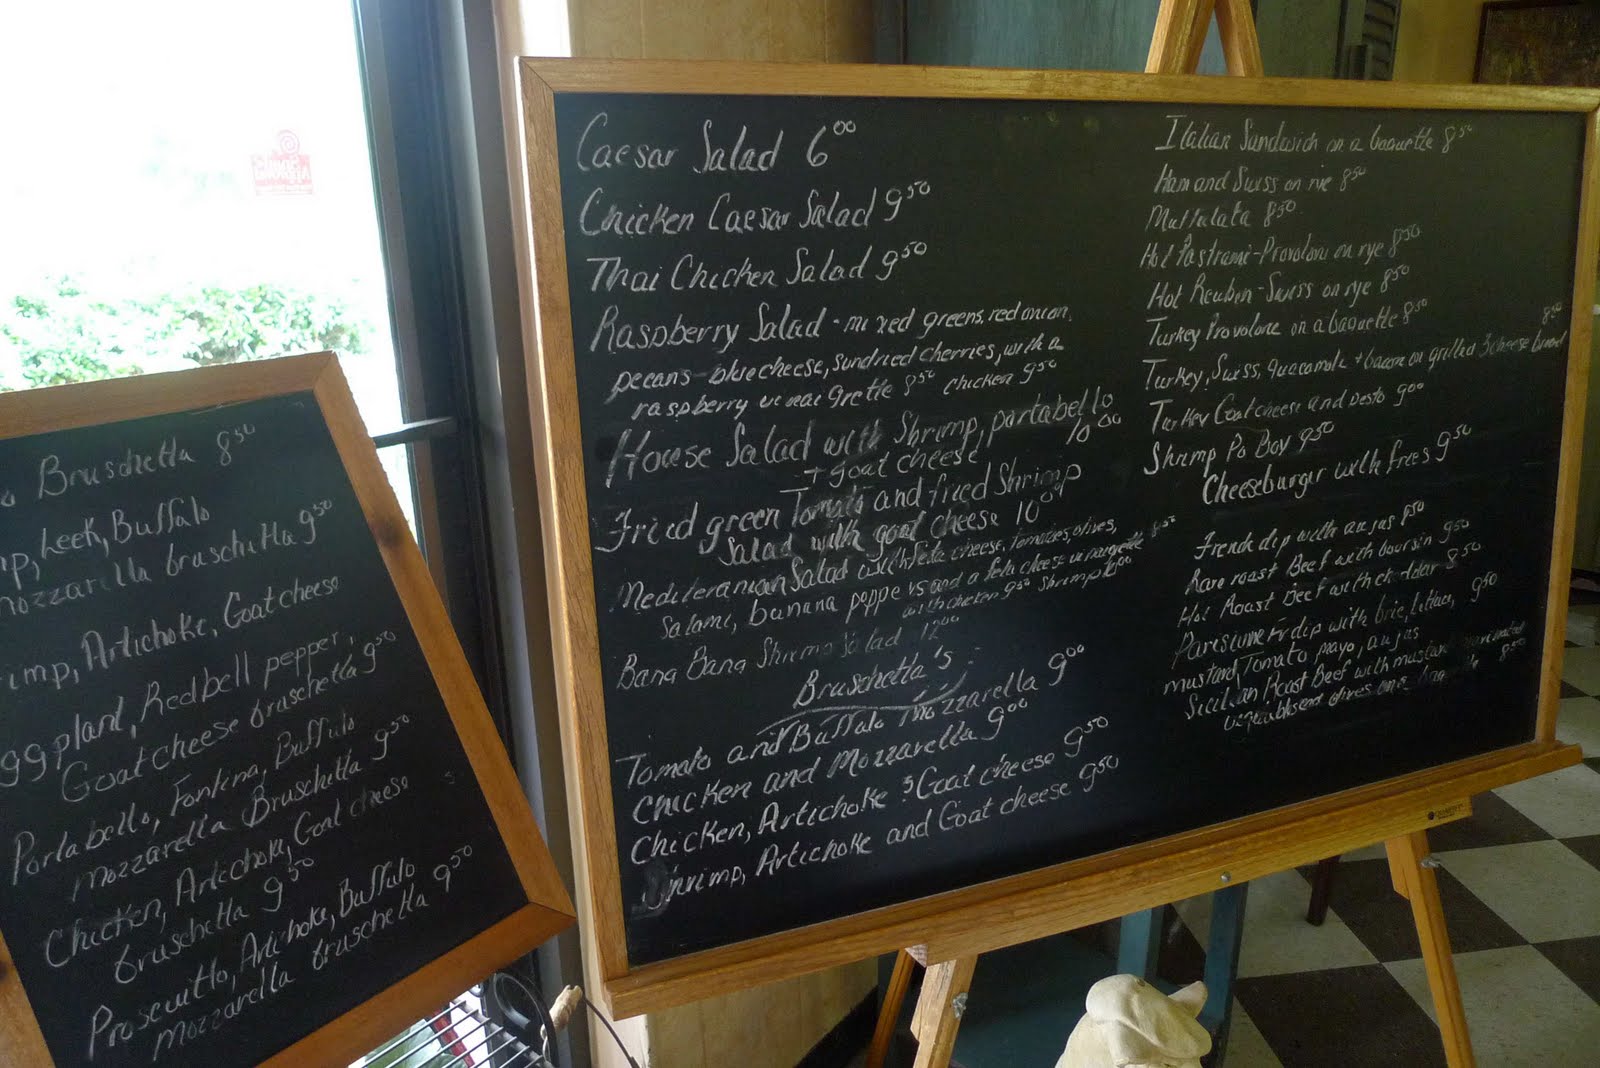 Bruschetta 8⁵⁰
Leek, Buffalo
mozzarella bruschetta 9⁵⁰
Artichoke, Goat cheese
eggplant, Red bell pepper,
Goat cheese bruschetta 9⁵⁰
Portabello, Fontina, Buffalo
mozzarella Bruschetta 9⁵⁰
Chicken, Artichoke, Goat cheese
bruschetta 9⁵⁰
Proscuitto, Artichoke, Buffalo
mozzarella bruschetta 9⁵⁰
Caesar Salad 6⁰⁰
Chicken Caesar Salad 9⁵⁰
Thai Chicken Salad 9⁵⁰
Raspberry Salad - mixed greens, red onion,
pecans - blue cheese, sundried cherries, with a
raspberry vinaigrette 8⁵⁰ chicken 9⁵⁰
House Salad with Shrimp, portabello
+ goat cheese 10⁰⁰
Fried green Tomato and fried Shrimp
Salad with goat cheese 10⁰⁰
Mediteranian Salad with feta cheese, tomatoes, olives,
Salami, banana peppers and a feta cheese vinaigrette 8⁵⁰
with chicken 9⁵⁰ Shrimp 10⁰⁰
Bang Bang Shrimp Salad 12⁰⁰
Bruschetta's:
Tomato and Buffalo mozzarella 9⁰⁰
Chicken and Mozzarella 9⁰⁰
Chicken, Artichoke & Goat cheese 9⁵⁰
Shrimp, Artichoke and Goat cheese 9⁵⁰
Italian Sandwich on a baguette 8⁵⁰
Ham and Swiss on rye 8⁵⁰
Muffalata 8⁵⁰
Hot Pastrami - Provolone on rye 8⁵⁰
Hot Reuben - Swiss on rye 8⁵⁰
Turkey Provolone on a baguette 8⁵⁰
Turkey, Swiss, guacamole + bacon on grilled 3 cheese bread 8⁵⁰
Turkey Goat cheese and pesto 9⁰⁰
Shrimp Po Boy 9⁵⁰
Cheeseburger with fries 9⁵⁰
French dip with au jus 8⁵⁰
Rare roast Beef with boursin 9⁵⁰
Hot Roast Beef with cheddar 8⁵⁰
Parisienne Fr dip with brie, lettuce,
mustard, Tomato mayo, au jus 9⁵⁰
Sicilian Roast Beef with mustard marinated
vegetables and olives on a 8⁵⁰